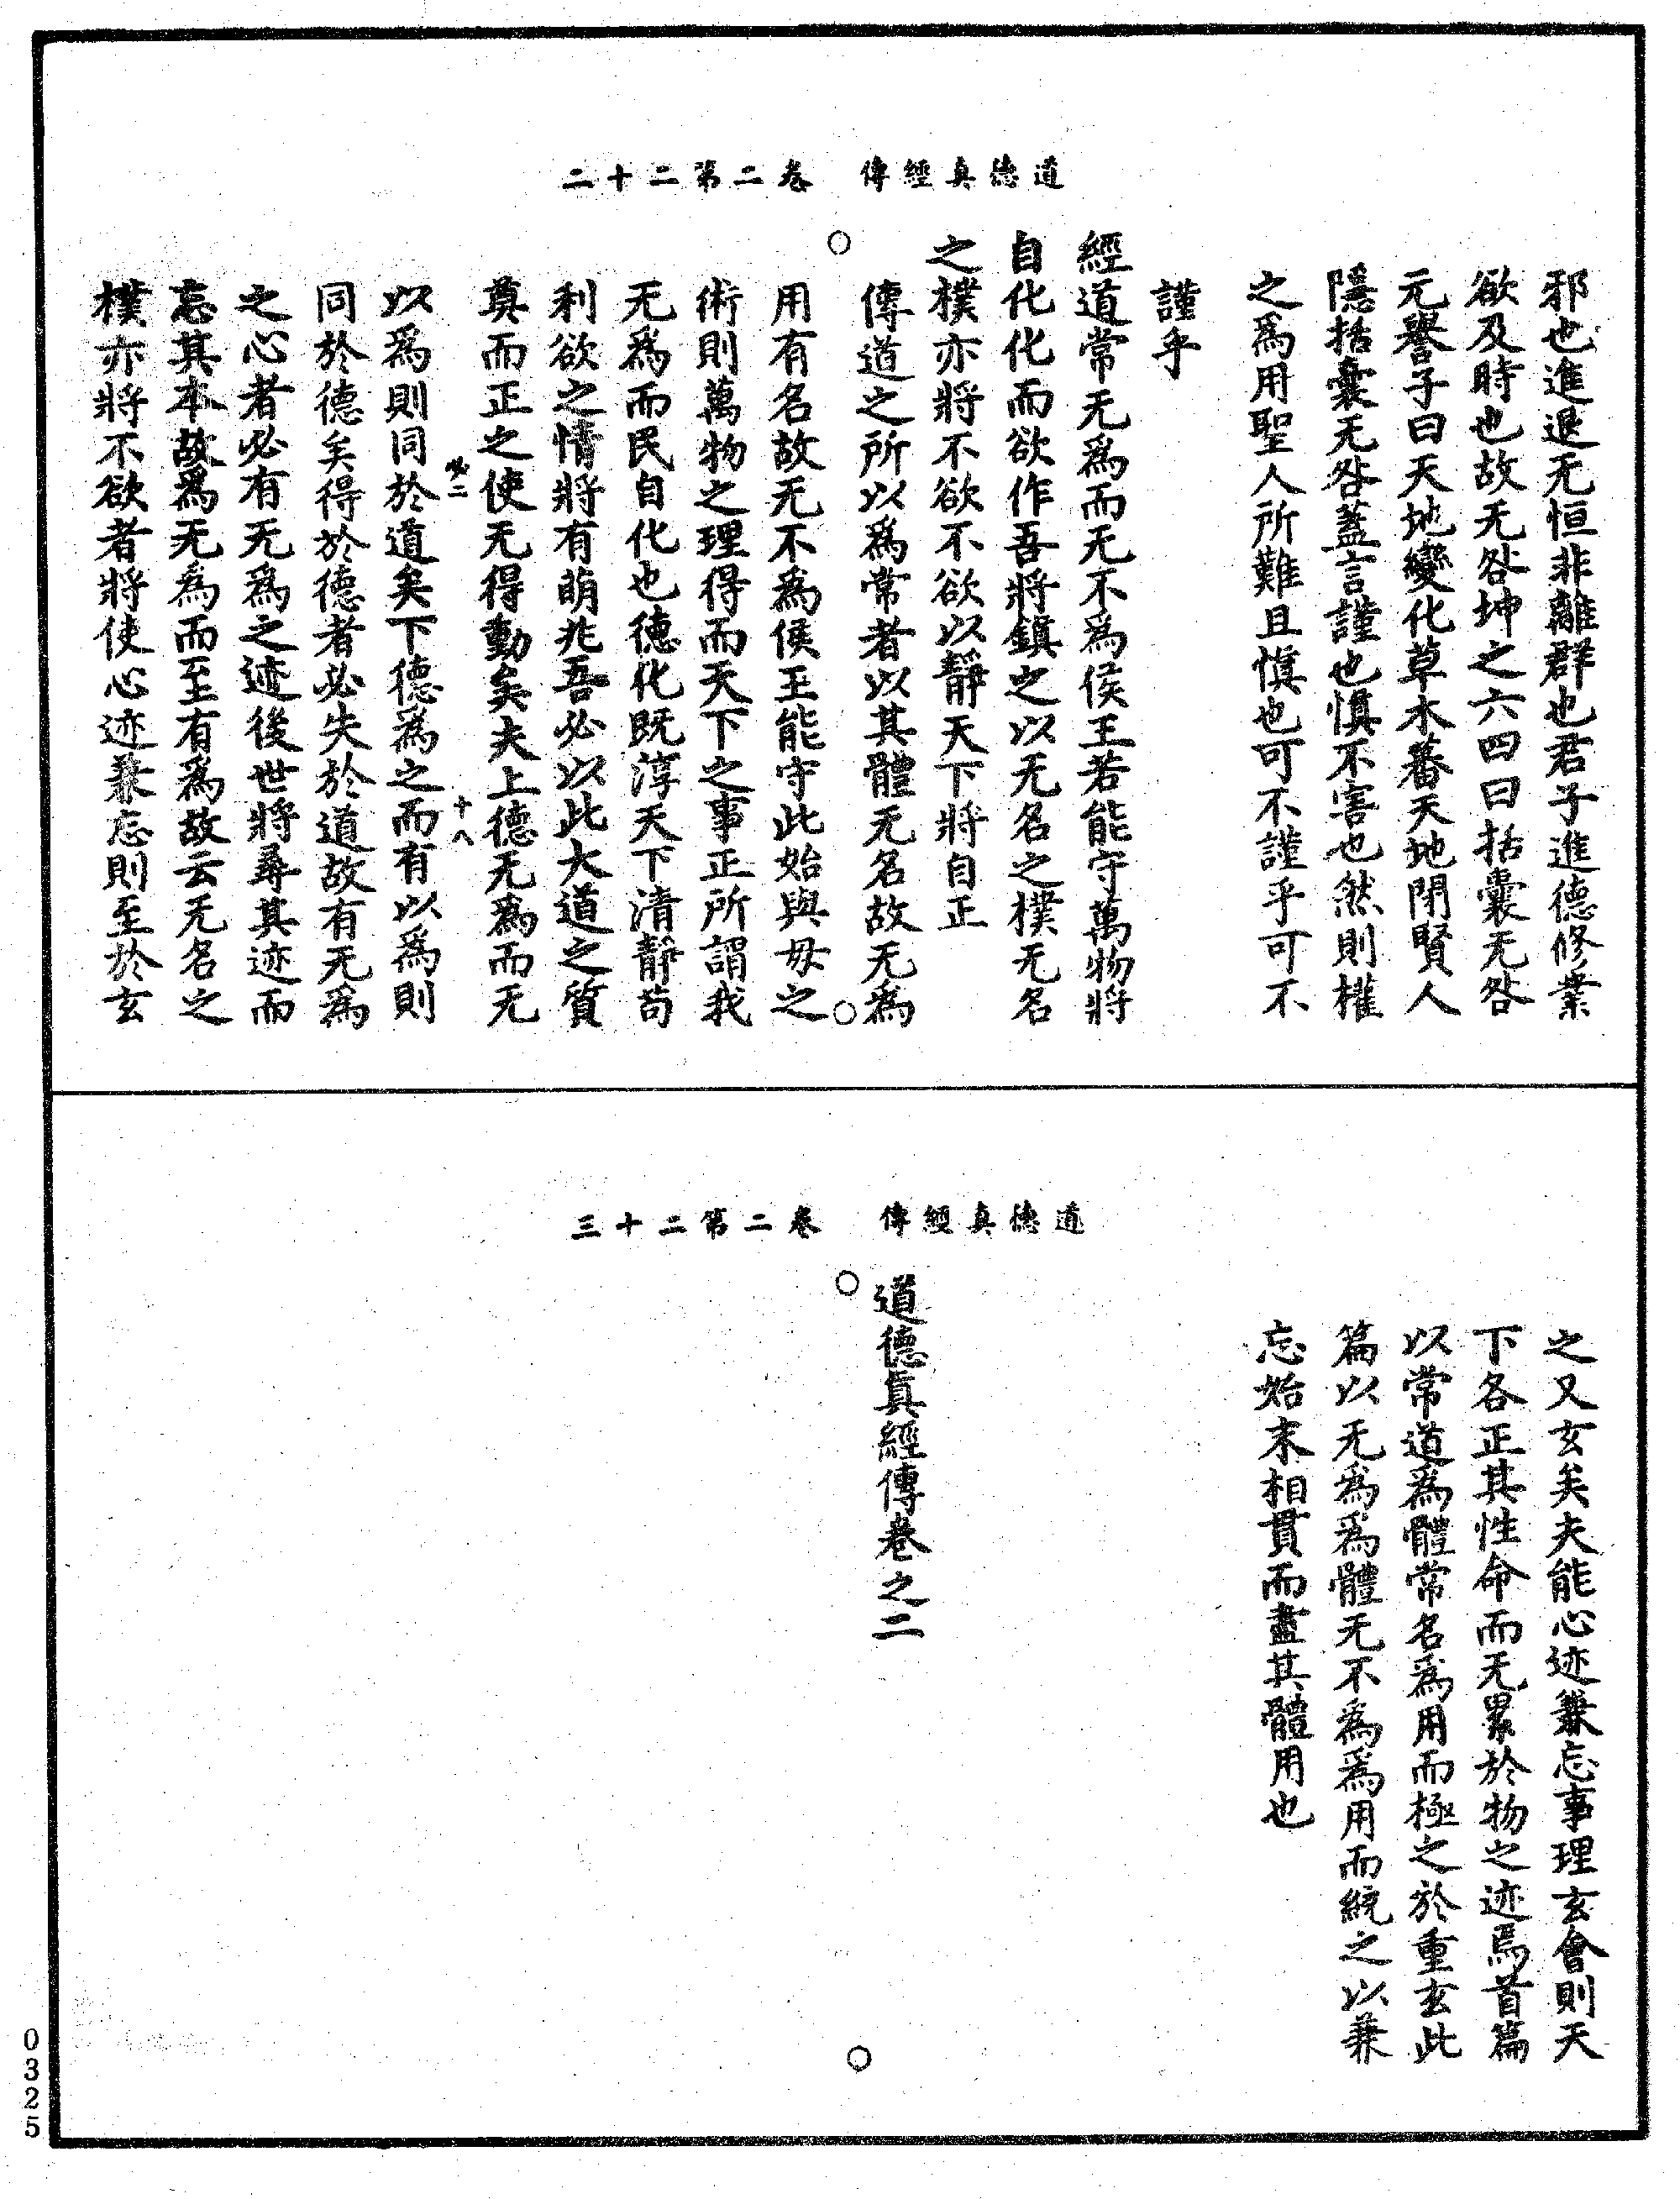 道德真經傳　卷二第二十二
邪也進退无恒非離群也君子進德修業
欲及時也故无咎坤之六四曰括囊无咎
元譽子曰天地變化草木蕃天地閉賢人
隱括囊无咎蓋言謹也慎不害也然則權
之爲用聖人所難且慎也可不謹乎可不
謹乎
經道常无爲而无不爲侯王若能守萬物將
自化化而欲作吾將鎮之以无名之樸无名
之樸亦將不欲不欲以靜天下將自正
傳道之所以爲常者以其體无名故无爲
用有名故无不爲侯王能守此始與母之
術則萬物之理得而天下之事正所謂我
无爲而民自化也德化既淳天下清靜苟
利欲之情將有萌兆吾必以此大道之質
奠而正之使无得動矣夫上德无爲而无
必二　十八
以爲則同於道矣下德爲之而有以爲則
同於德矣得於德者必失於道故有无爲
之心者必有无爲之迹後世將尋其迹而
忘其本故爲无爲而至有爲故云无名之
樸亦將不欲者將使心迹兼忘則至於玄
道德真經傳　卷二第二十三
之又玄矣夫能心迹兼忘事理玄會則天
下各正其性命而无累於物之迹焉首篇
以常道爲體常名爲用而極之於重玄此
篇以无爲爲體无不爲爲用而統之以兼
忘始末相貫而盡其體用也
道德真經傳卷之二
0325